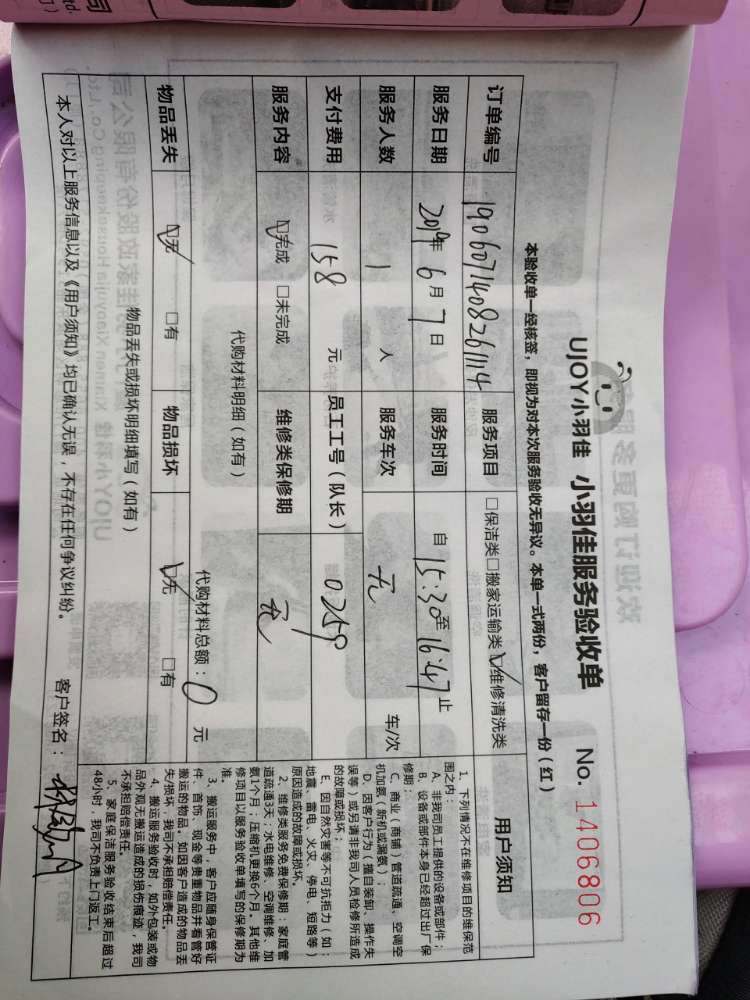 UJOY小羽佳 小羽佳服务验收单 No. 1406806
本验收单一经核签，即视为对本次服务验收无异议。本单一式两份，客户留存一份（红）
订单编号 190607140826114 服务项目 □保洁类□搬家运输类☑维修清洗类
服务日期 2019年6月7日 服务时间 自15:30至16:47止
服务人数 1 人 服务车次 无 车/次
支付费用 158 元 员工工号（队长） 0259
服务内容 ☑完成 □未完成 维修类保修期 无
代购材料明细（如有）
代购材料总额：0 元
物品丢失 ☑无 □有 物品损坏 ☑无 □有
物品丢失或损坏明细填写（如有）
本人对以上服务信息以及《用户须知》均已确认无误，不存在任何争议纠纷。 客户签名：
用户须知
1、下列情况不在维修项目的维保范
围之内：
A、非我司员工提供的设备或部件；
B、设备或部件本身已经超过出厂保
修期；
C、商业（商铺）管道疏通、空调空
机加氨（新机或漏氨）；
D、因客户行为（擅自装卸、操作失
误等）或另请非我司人员检修所造成
的故障或损坏；
E、因自然灾害等不可抗拒力（如：
地震、雷电、火灾、停电、短路等）
原因造成的故障或损坏。
2、维修类服务免费保修期：家庭管
道疏通3天；水电维修、空调维修、加
氨1个月；压缩机更换6个月。其他维
修项目以服务验收单填写的保修期为
准。
3、搬运服务中，客户应随身保管证
件、首饰、现金等贵重物品并看管好
搬运的物品。如因客户造成的物品丢
失/损坏，我司不承担赔偿责任。
4、搬运服务验收时，如外包装或物
品外观无搬运造成的损伤痕迹，我司
不承担赔偿责任。
5、家庭保洁服务验收结束后超过
48小时，我司不负责上门返工。